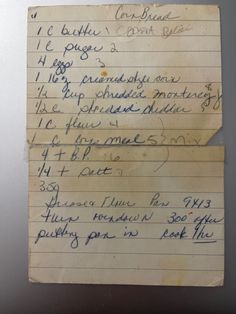 Corn Bread
1 C butter 1 CREAM
1 C sugar 2
4 eggs 3
1 16 oz creamed style corn
1/2 cup shredded monterey
1/2 C shredded cheddar 5
1 C flour 4
C corn meal 5 Mix
4 t B.P. 6
1/4 t salt 7
350
Grease & Flour Pan 9x13
turn oven down 300° after
putting pan in cook 1 hr